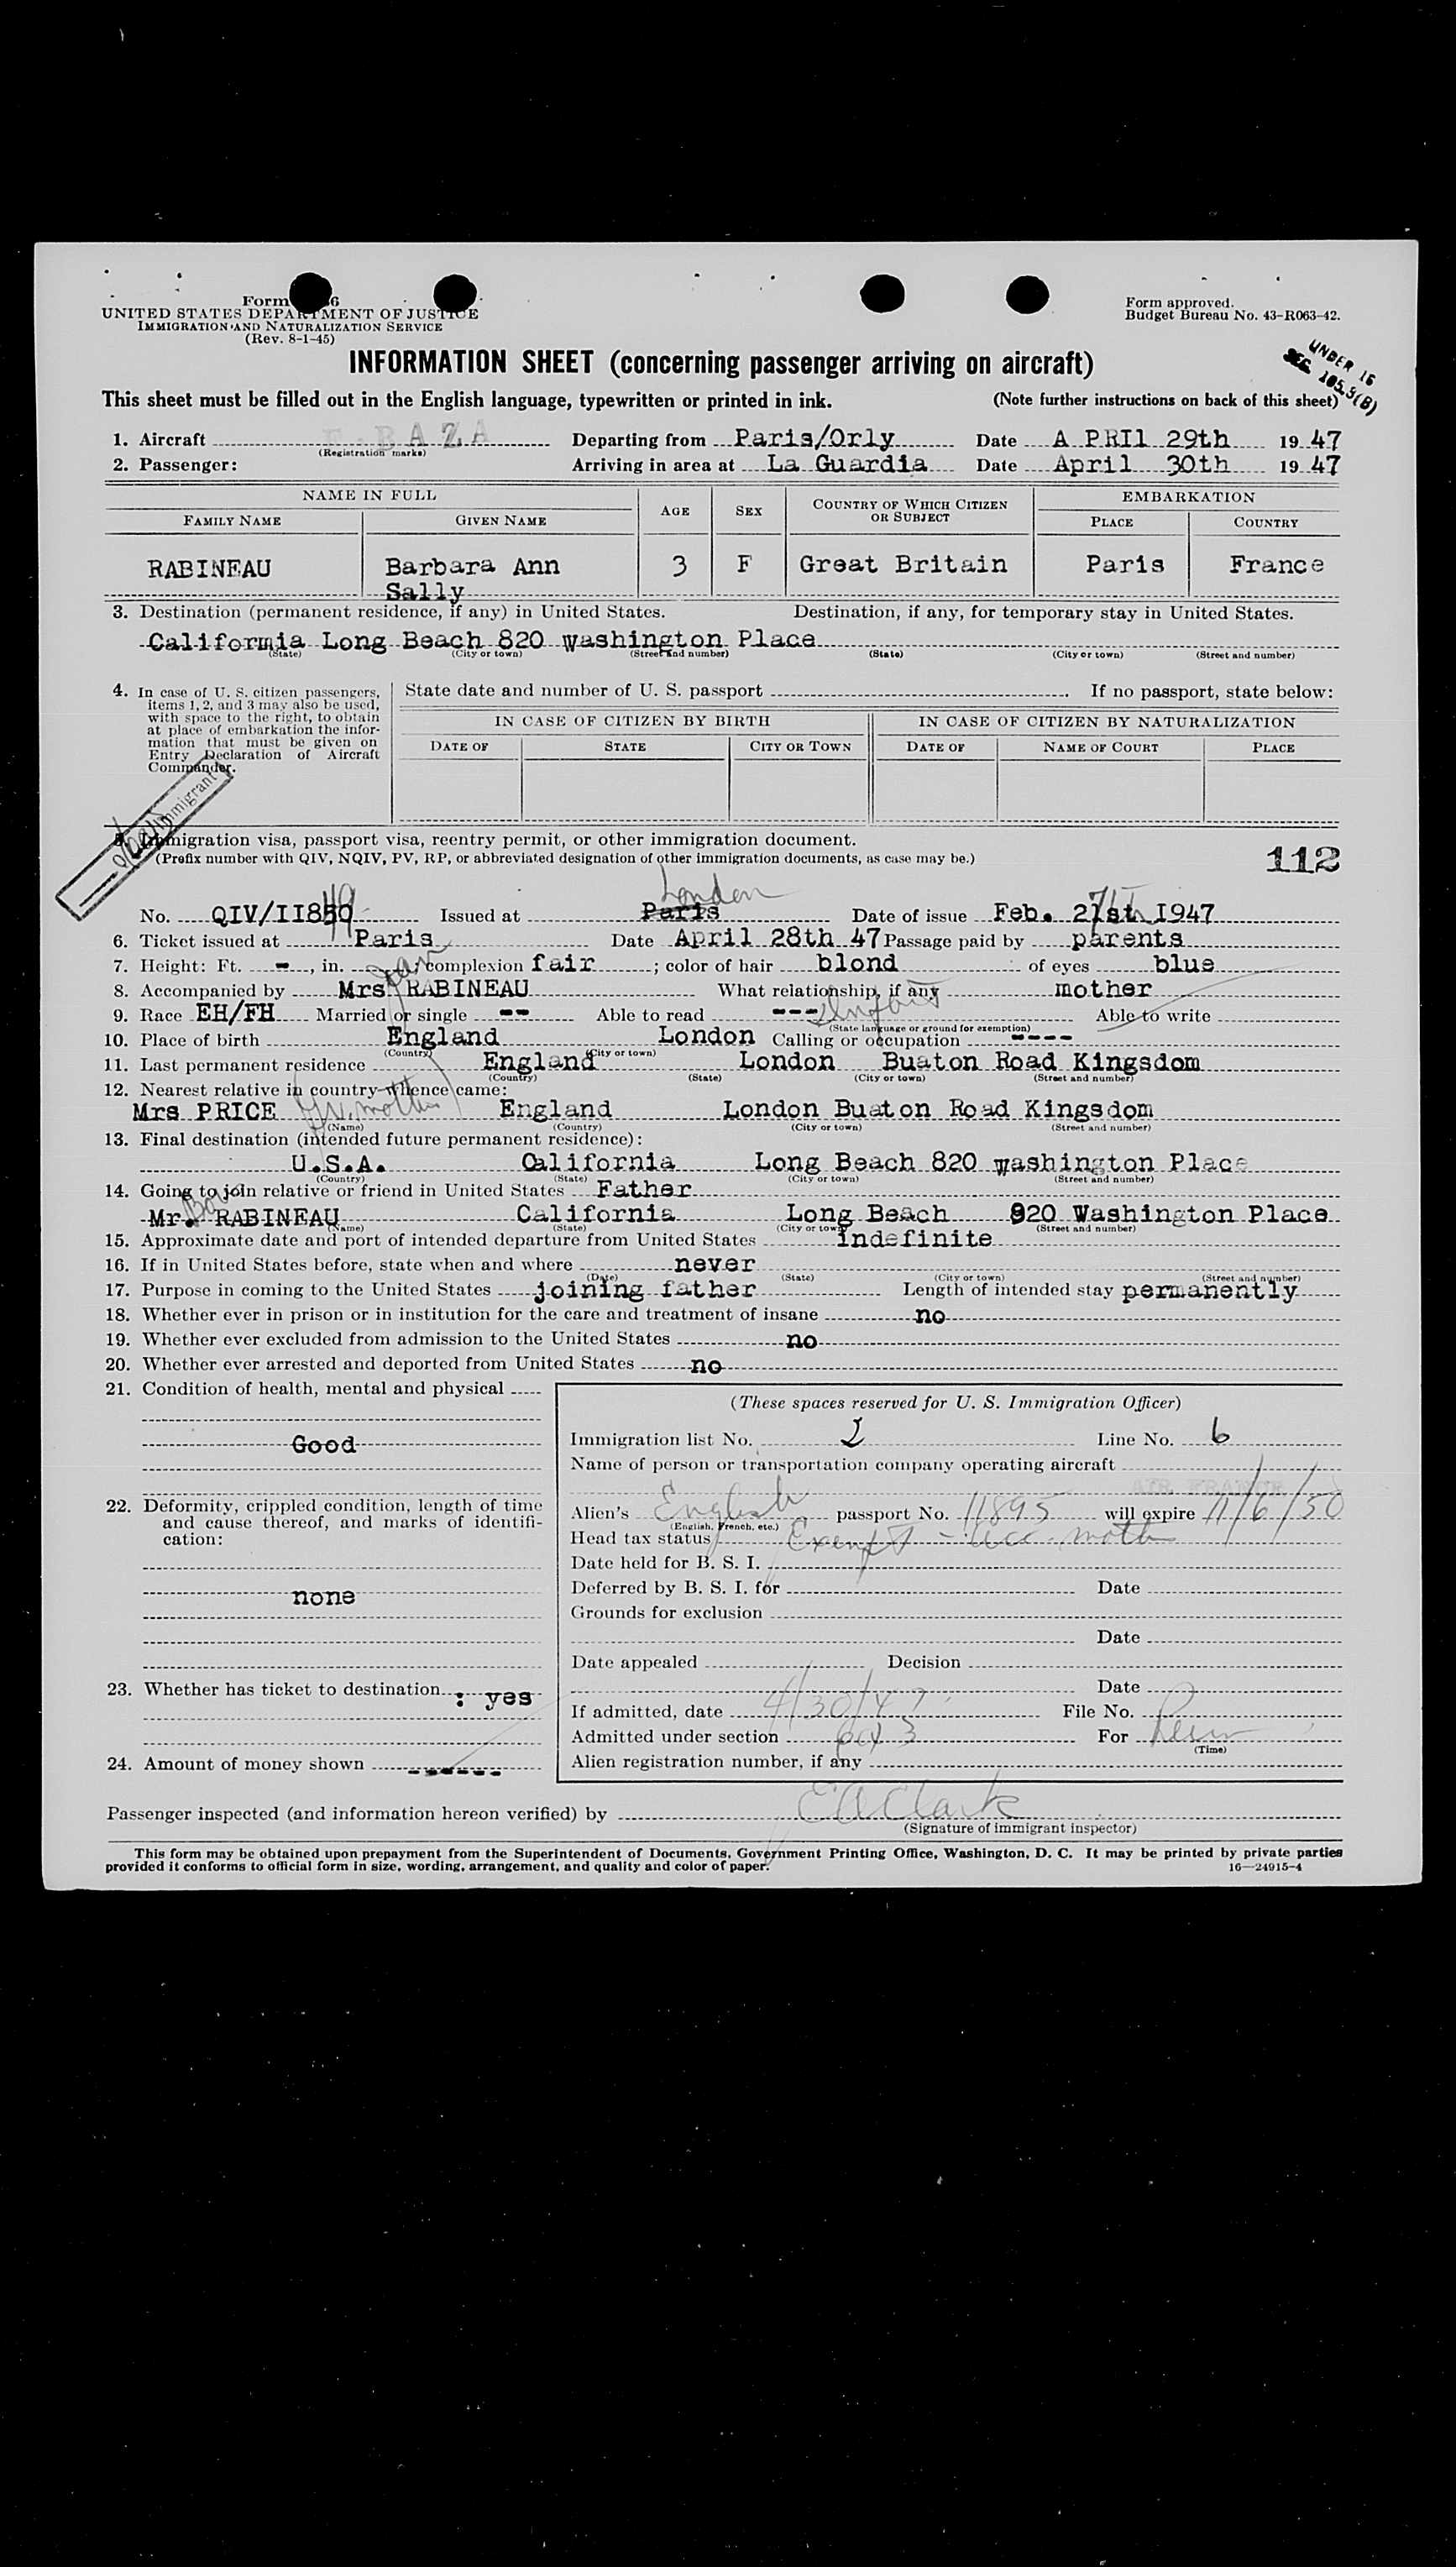 Form
UNITED STATES DEPARTMENT OF JUSTICE
IMMIGRATION AND NATURALIZATION SERVICE
(Rev. 8-1-45)
Form approved.
Budget Bureau No. 43-R063-42.
INFORMATION SHEET (concerning passenger arriving on aircraft)
UNDER 16
SEC 105.3(B)
This sheet must be filled out in the English language, typewritten or printed in ink. (Note further instructions on back of this sheet)
1. Aircraft F-BAZA Departing from Paris/Orly Date A PRIl 29th 19 47
(Registration marks)
2. Passenger: Arriving in area at La Guardia Date April 30th 19 47
NAME IN FULL AGE SEX COUNTRY OF WHICH CITIZEN OR SUBJECT EMBARKATION
FAMILY NAME GIVEN NAME PLACE COUNTRY
RABINEAU Barbara Ann 3 F Great Britain Paris France
Sally
3. Destination (permanent residence, if any) in United States. Destination, if any, for temporary stay in United States.
California Long Beach 820 washington Place
(State) (City or town) (Street and number) (State) (City or town) (Street and number)
4. In case of U. S. citizen passengers, items 1, 2, and 3 may also be used, with space to the right, to obtain at place of embarkation the information that must be given on Entry Declaration of Aircraft Commander.
State date and number of U. S. passport If no passport, state below:
IN CASE OF CITIZEN BY BIRTH IN CASE OF CITIZEN BY NATURALIZATION
DATE OF STATE CITY OR TOWN DATE OF NAME OF COURT PLACE
Immigrant
5. Immigration visa, passport visa, reentry permit, or other immigration document.
(Prefix number with QIV, NQIV, PV, RP, or abbreviated designation of other immigration documents, as case may be.)
112
London
No. QIV/II859 49 Issued at Paris Date of issue Feb. 21st 7th I947
6. Ticket issued at Paris Date April 28th 47 Passage paid by parents
7. Height: Ft. -, in. ; complexion fair ; color of hair blond of eyes blue
8. Accompanied by Mrs RABINEAU What relationship, if any mother
9. Race EH/FH Married or single -- Able to read --- Infant Able to write
(State language or ground for exemption)
10. Place of birth England London Calling or occupation ----
(Country) (City or town)
11. Last permanent residence England London Buaton Road Kingsdom
(Country) (State) (City or town) (Street and number)
12. Nearest relative in country whence came:
Mrs PRICE Gr. mother England London Buaton Road Kingsdom
(Name) (Country) (City or town) (Street and number)
13. Final destination (intended future permanent residence):
U.S.A. California Long Beach 820 washington Place
(Country) (State) (City or town) (Street and number)
14. Going to join relative or friend in United States Father
Mr. RABINEAU California Long Beach 820 Washington Place
(Name) (State) (City or town) (Street and number)
15. Approximate date and port of intended departure from United States indefinite
16. If in United States before, state when and where never
(Date) (State) (City or town) (Street and number)
17. Purpose in coming to the United States joining father Length of intended stay permanently
18. Whether ever in prison or in institution for the care and treatment of insane no
19. Whether ever excluded from admission to the United States no
20. Whether ever arrested and deported from United States no
21. Condition of health, mental and physical
Good
22. Deformity, crippled condition, length of time and cause thereof, and marks of identification:
none
23. Whether has ticket to destination : yes
24. Amount of money shown ------
(These spaces reserved for U. S. Immigration Officer)
Immigration list No. 2 Line No. 6
Name of person or transportation company operating aircraft
AIR FRANCE
Alien's English passport No. 11895 will expire 11/6/50
(English, French, etc.)
Head tax status Exempt - acc. moth
Date held for B. S. I.
Deferred by B. S. I. for Date
Grounds for exclusion
Date
Date appealed Decision
Date
If admitted, date 4/30/47 File No.
Admitted under section 6a3 For Perm
(Time)
Alien registration number, if any
Passenger inspected (and information hereon verified) by E A Clark
(Signature of immigrant inspector)
This form may be obtained upon prepayment from the Superintendent of Documents, Government Printing Office, Washington, D. C. It may be printed by private parties
provided it conforms to official form in size, wording, arrangement, and quality and color of paper.
16—24915-4